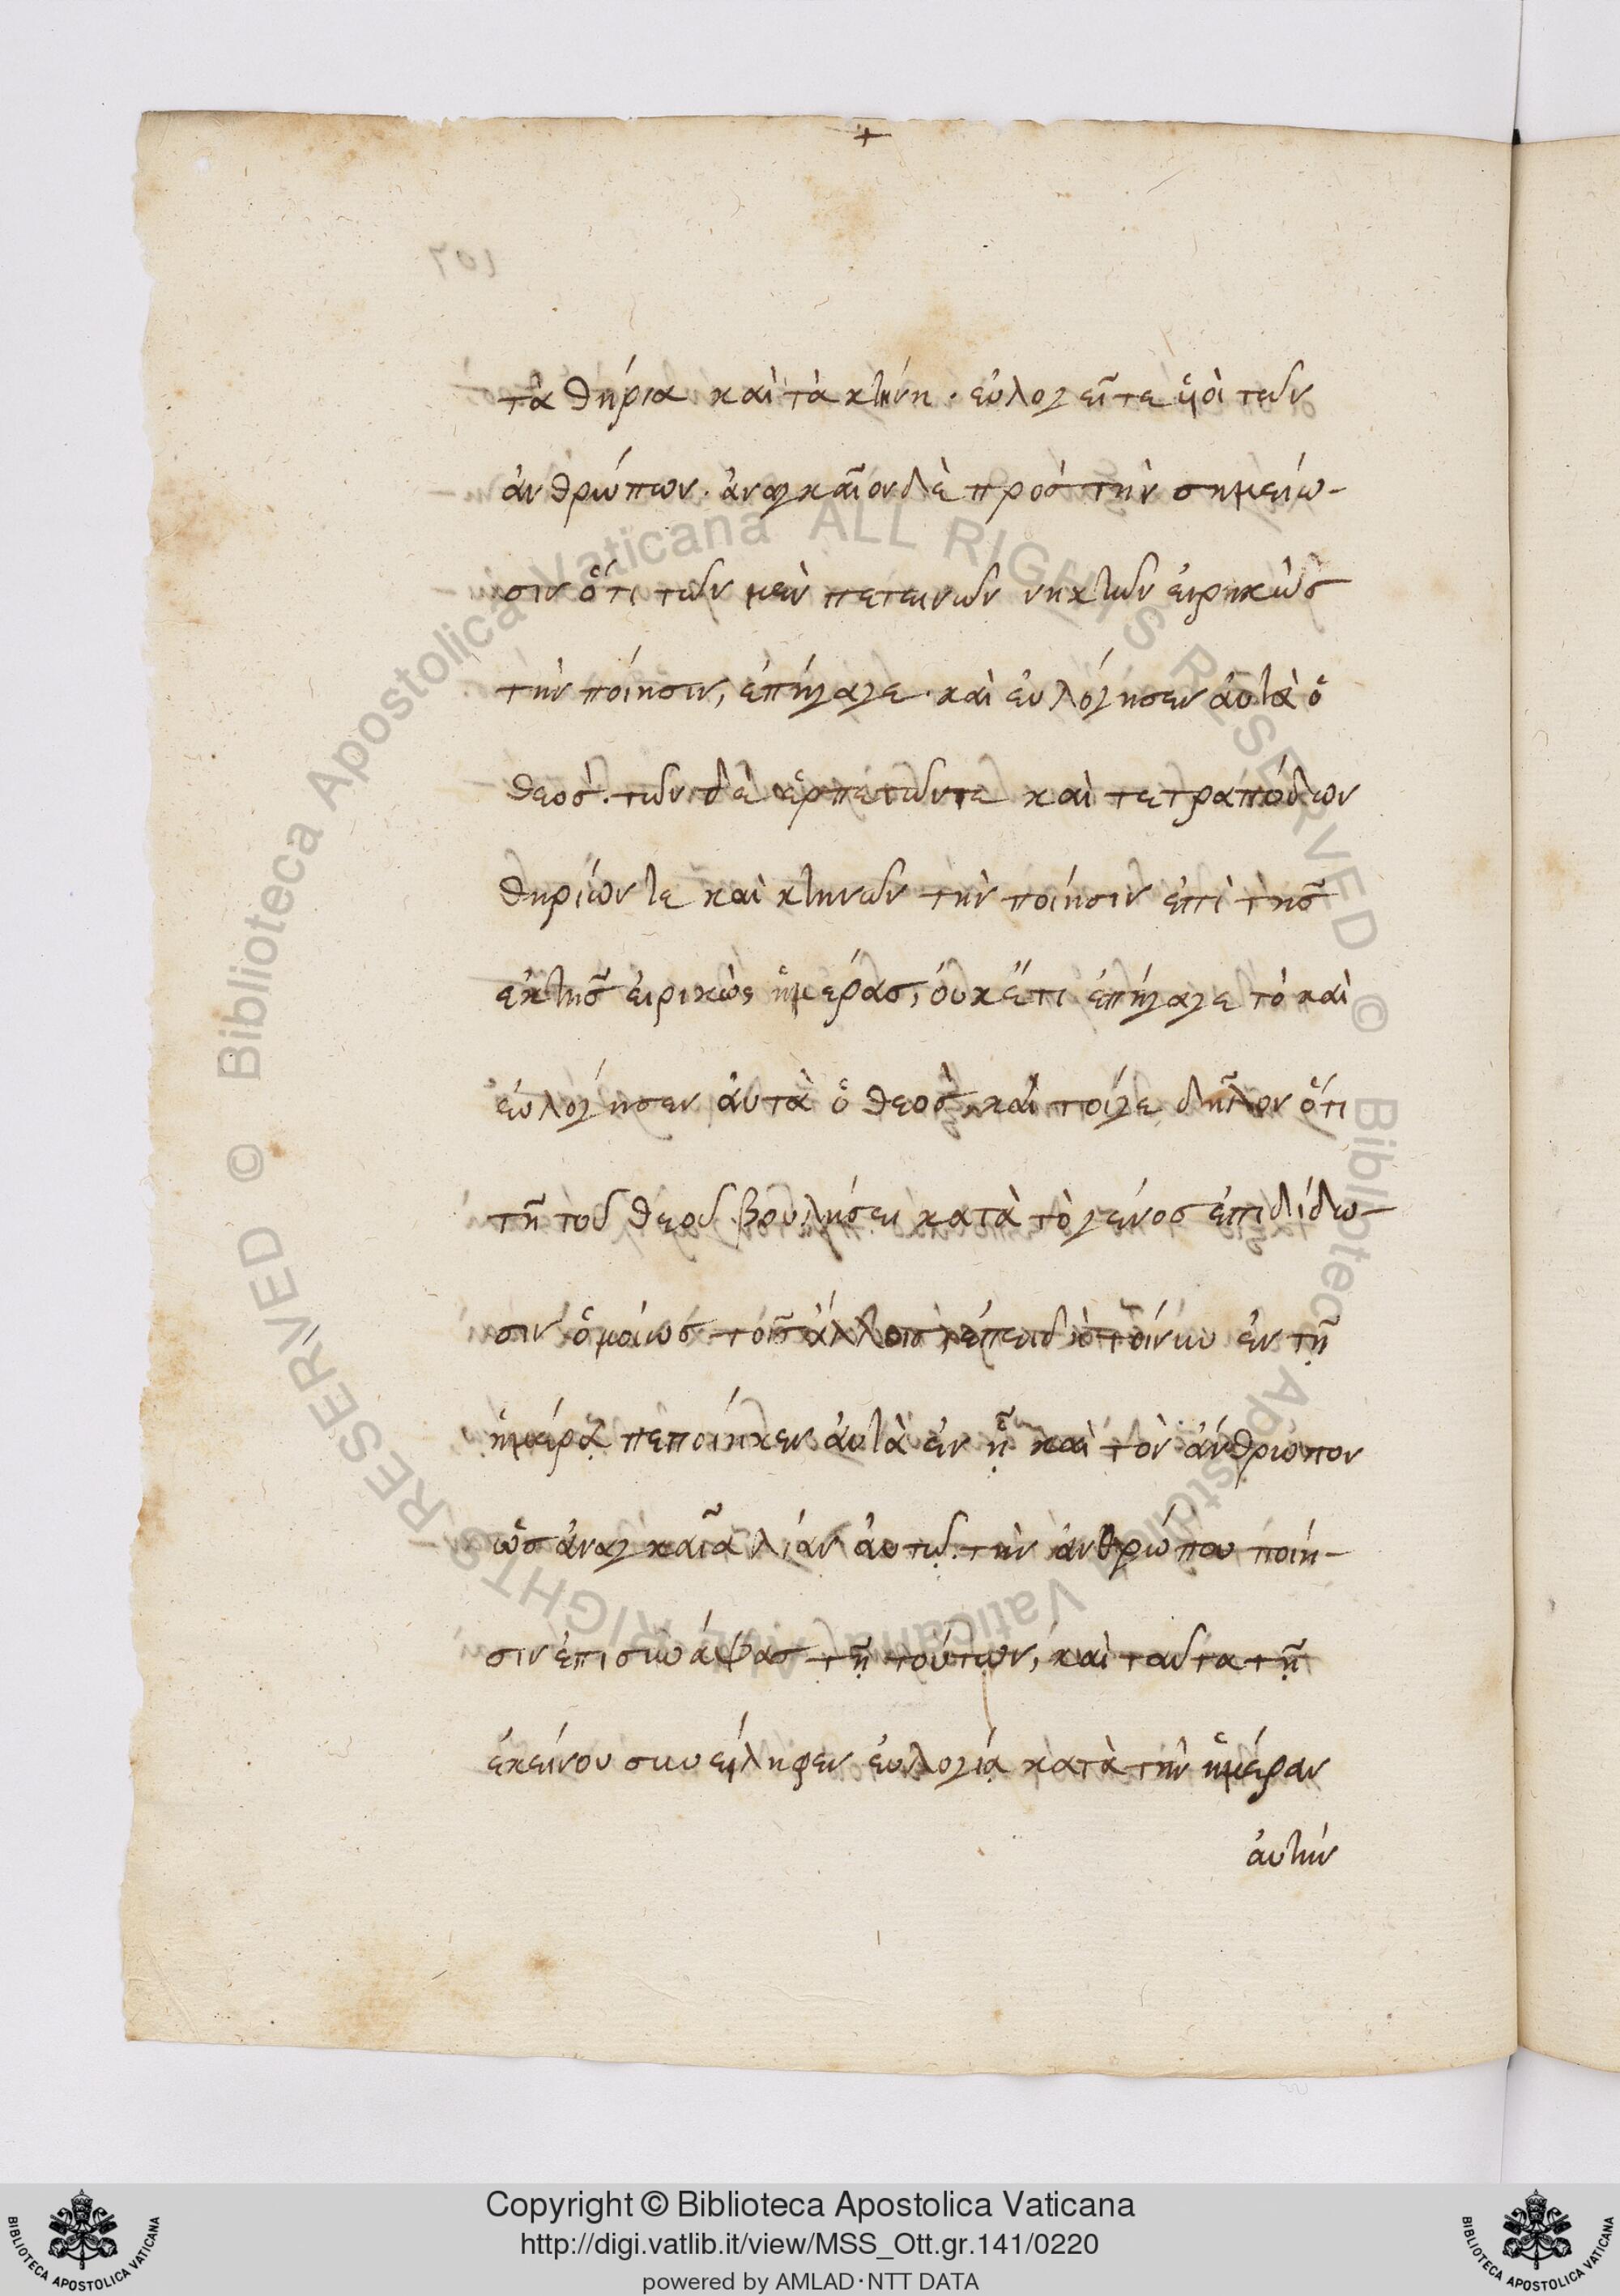 +
τὰ θηρία καὶ τὰ κτήνη. εὐλογεῖτε ὑοὶ τῶν
ἀνθρώπων. ἀναγκαῖον δὲ πρὸς τὴν σημείω-
σιν ὅτι τῶν μὲν πετεινῶν νηκτῶν εἰρηκὼς
τὴν ποίησιν, ἐπήγαγε. καὶ εὐλόγησεν ἀυτὰ ὁ
θεός. τῶν δὲ ἑρπετῶν τε καὶ τετραπόδων
θηρίων τε καὶ κτηνῶν τὴν ποίησιν ἐπὶ τῆς
ἕκτης εἰρικὼς ἡμέρας, ὀυκέτι ἐπήγαγε τὸ καὶ
εὐλόγησεν ἀυτὰ ὁ θεὸς, καί τοίγε δῆλον ὅτι
τῇ τοῦ θεοῦ βουλήσει κατὰ τὸ γένος ἐπιδίδω-
σιν ὁμοίως τοῖς ἄλλοις, ἐπειδὴ τοίνυν ἐν τῇ
ἡμέρᾳ πεποίηκεν ἀυτὰ ἐν ᾗ καὶ τὸν ἄνθρωπον
ὡς ἀναγκαῖα λίαν ἀυτῷ. τὴν ἀνθρώπου ποίη-
σιν ἐπισυνάψας τῇ τούτων, καὶ ταῦτα τῇ
ἐκείνου συνείληφεν ἐυλογίᾳ κατὰ τὴν ἡμέραν
ἀυτήν
Copyright © Biblioteca Apostolica Vaticana
http://digi.vatlib.it/view/MSS_Ott.gr.141/0220
powered by AMLAD·NTT DATA
BIBLIOTECA APOSTOLICA VATICANA
BIBLIOTECA APOSTOLICA VATICANA
© Biblioteca Apostolica Vaticana ALL RIGHTS RESERVED © Biblioteca Apostolica Vaticana ALL RIGHTS RESERVED